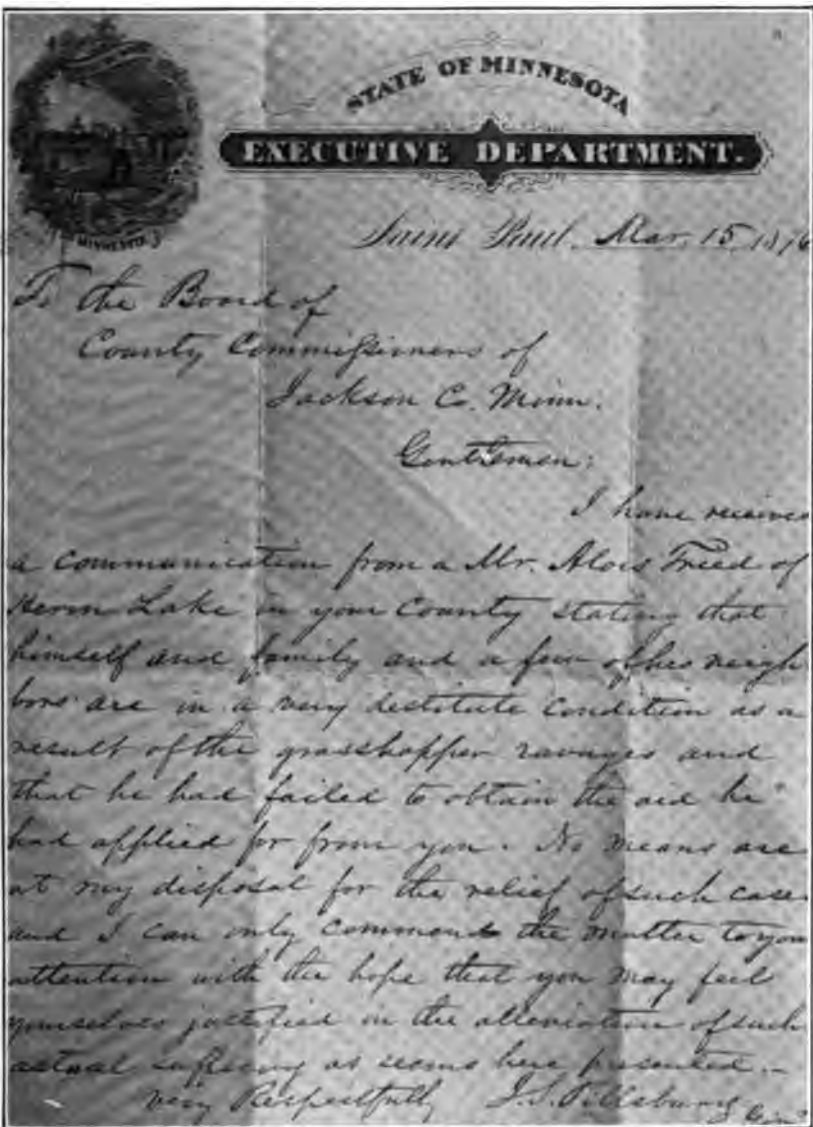 STATE OF MINNESOTA
EXECUTIVE DEPARTMENT.
MINNESOTA
Saint Paul, Mar. 15, 1876
To the Board of
County Commissioners of
Jackson Co. Minn.
Gentlemen;
I have receive
a communication from a Mr. Alois Freed of
Heron Lake in your County stating that
himself and family and a few of his neigh
bors are in a very destitute condition as a
result of the grasshopper ravages and
that he had failed to obtain the aid he
had applied for from you. No means are
at my disposal for the relief of such case
and I can only commend the matter to you
attention with the hope that you may feel
yourselves justified in the alleviation of such
actual suffering as seems here presented.-
Very Respectfully J.S. Pillsbury Gov.